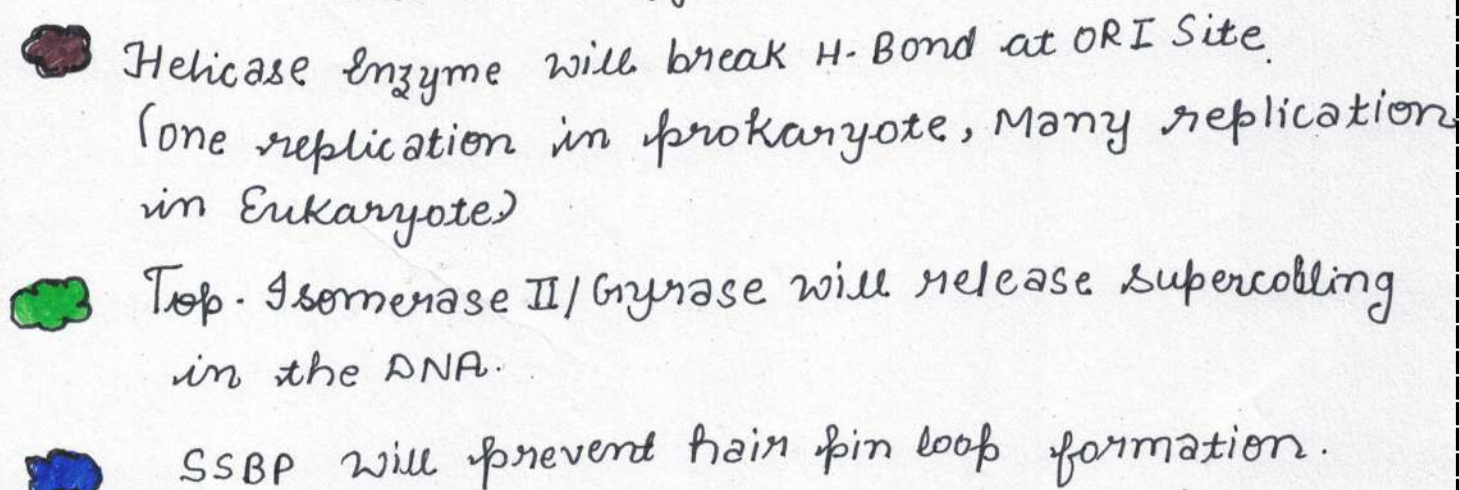 Helicase Enzyme will break H-Bond at ORI Site.
(one replication in prokaryote, Many replication
in Eukaryote)
Top. Isomerase II/Gyrase will release supercoiling
in the DNA.
SSBP will prevent hair pin loop formation.